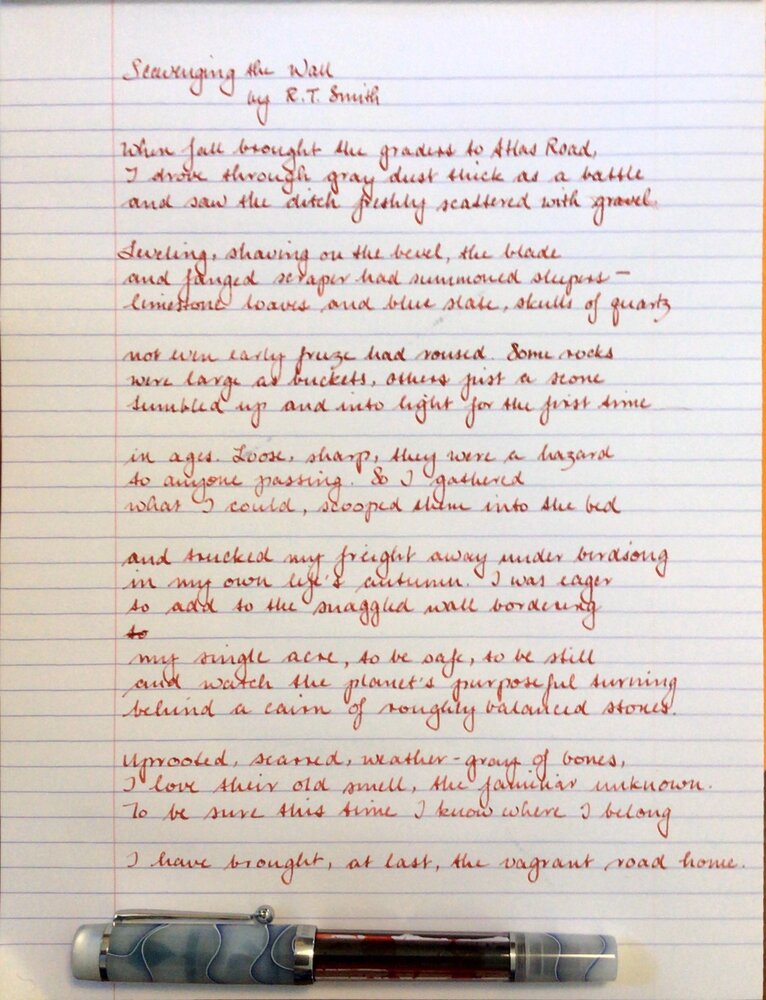 Scavenging the Wall
by R.T. Smith
When fall brought the graders to Atlas Road,
I drove through gray dust thick as a battle
and saw the ditch freshly scattered with gravel.
Leveling, shaving on the bevel, the blade
and fanged scraper had summoned sleepers –
limestone loaves and blue slate, skulls of quartz
not even early freeze had roused. Some rocks
were large as buckets, others just a scone
tumbled up and into light for the first time
in ages. Loose, sharp, they were a hazard
to anyone passing. So I gathered
what I could, scooped them into the bed
and trucked my freight away under birdsong
in my own life's autumn. I was eager
to add to the snaggled wall bordering
to
my single acre, to be safe, to be still
and watch the planet's purposeful turning
behind a cairn of roughly balanced stones.
Uprooted, scarred, weather-gray of bones,
I love their old smell, the familiar unknown.
To be sure this time I know where I belong
I have brought, at last, the vagrant road home.